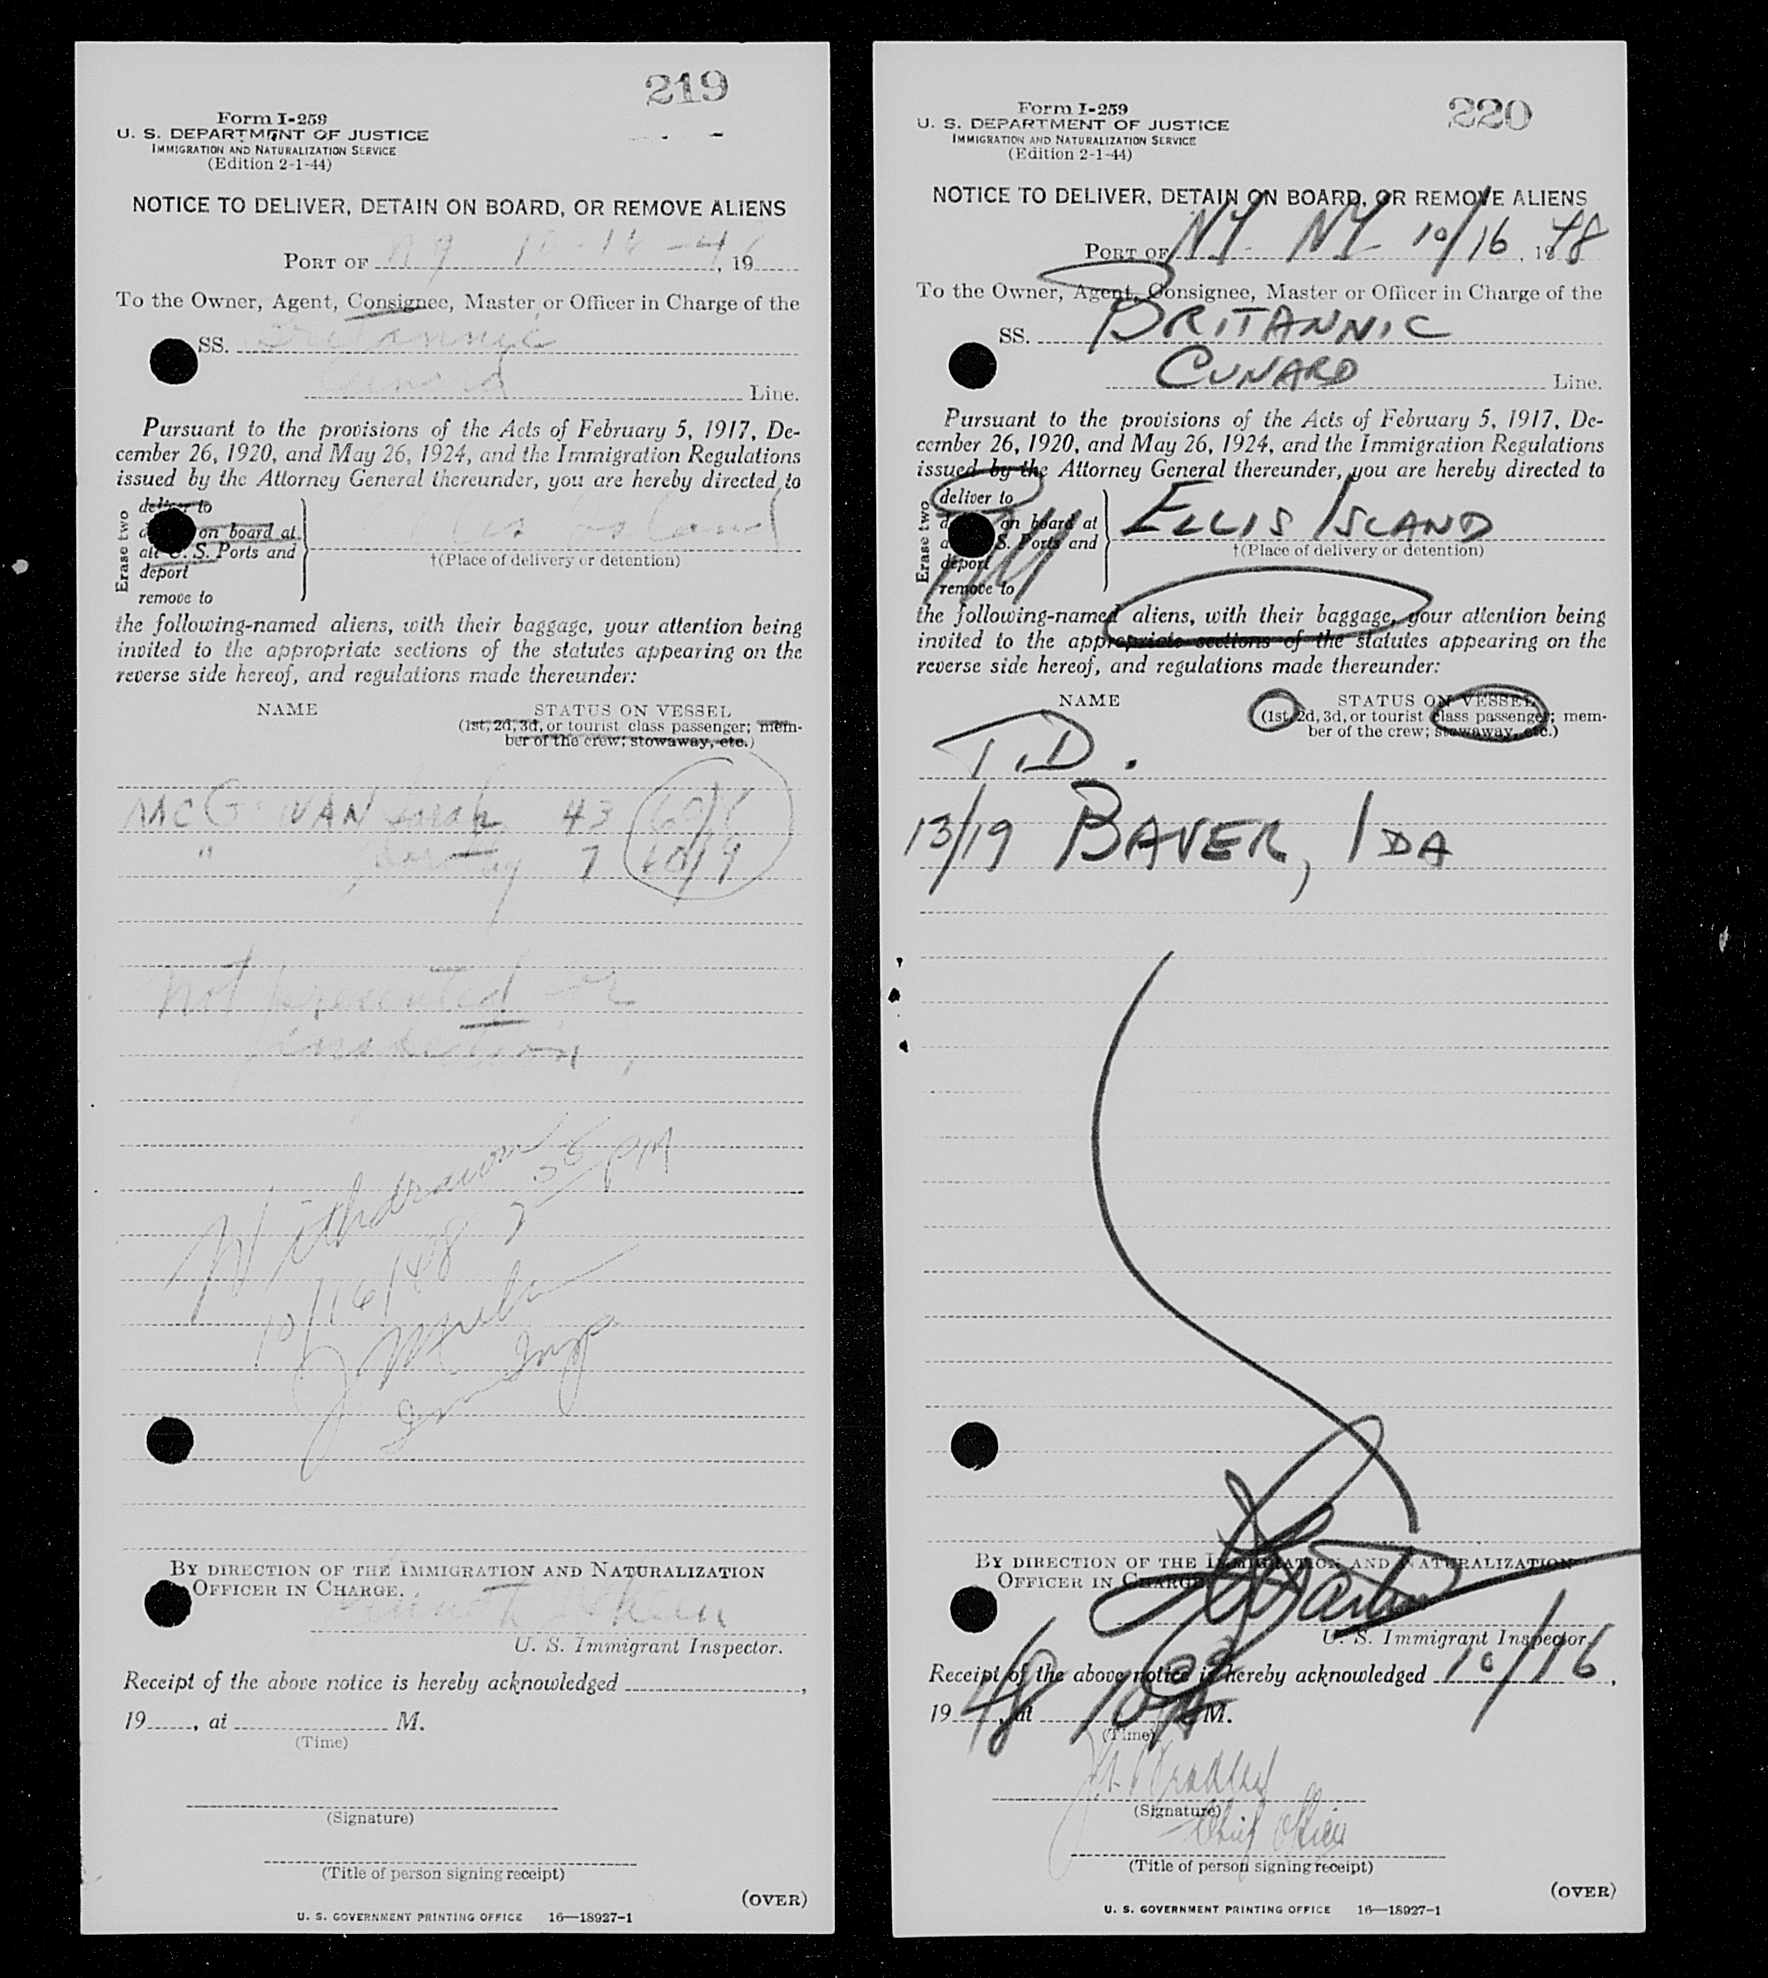 219
Form I-259
U. S. DEPARTMENT OF JUSTICE
IMMIGRATION AND NATURALIZATION SERVICE
(Edition 2-1-44)
NOTICE TO DELIVER, DETAIN ON BOARD, OR REMOVE ALIENS
PORT OF NY 10-16-48, 19
To the Owner, Agent, Consignee, Master or Officer in Charge of the
SS. Britannic
Cunard Line.
Pursuant to the provisions of the Acts of February 5, 1917, De-
cember 26, 1920, and May 26, 1924, and the Immigration Regulations
issued by the Attorney General thereunder, you are hereby directed to
Erase two
deliver to
on board at
all U. S. Ports and
deport
remove to
Ellis Island
†(Place of delivery or detention)
the following-named aliens, with their baggage, your attention being
invited to the appropriate sections of the statutes appearing on the
reverse side hereof, and regulations made thereunder:
NAME STATUS ON VESSEL
(1st, 2d, 3d, or tourist class passenger; mem-
ber of the crew; stowaway, etc.)
McGowan Sarah 43 60/8
" 7 60/9
Not presented for
inspection
Withdrawn
10/16/48 PM
Imm Insp
BY DIRECTION OF THE IMMIGRATION AND NATURALIZATION
OFFICER IN CHARGE.
Kenneth
U. S. Immigrant Inspector.
Receipt of the above notice is hereby acknowledged ,
19 , at M.
(Time)
(Signature)
(Title of person signing receipt)
(OVER)
U. S. GOVERNMENT PRINTING OFFICE 16—18927-1
220
Form I-259
U. S. DEPARTMENT OF JUSTICE
IMMIGRATION AND NATURALIZATION SERVICE
(Edition 2-1-44)
NOTICE TO DELIVER, DETAIN ON BOARD, OR REMOVE ALIENS
PORT OF NY - NY - 10/16, 1948
To the Owner, Agent, Consignee, Master or Officer in Charge of the
SS. BRITANNIC
CUNARD Line.
Pursuant to the provisions of the Acts of February 5, 1917, De-
cember 26, 1920, and May 26, 1924, and the Immigration Regulations
issued by the Attorney General thereunder, you are hereby directed to
Erase two
deliver to
on board at
S. Ports and
deport
remove to
ELLIS ISLAND
†(Place of delivery or detention)
the following-named aliens, with their baggage, your attention being
invited to the appropriate sections of the statutes appearing on the
reverse side hereof, and regulations made thereunder:
NAME STATUS ON VESSEL
(1st, 2d, 3d, or tourist class passenger; mem-
ber of the crew; stowaway, etc.)
T.D.
13/19 BAVER, IDA
BY DIRECTION OF THE IMMIGRATION AND NATURALIZATION
OFFICER IN CHARGE
U. S. Immigrant Inspector.
Receipt of the above notice is hereby acknowledged 10/16,
1948, at 10 M.
(Time)
Bradley
(Signature)
Chief Officer
(Title of person signing receipt)
(OVER)
U. S. GOVERNMENT PRINTING OFFICE 16—18927-1